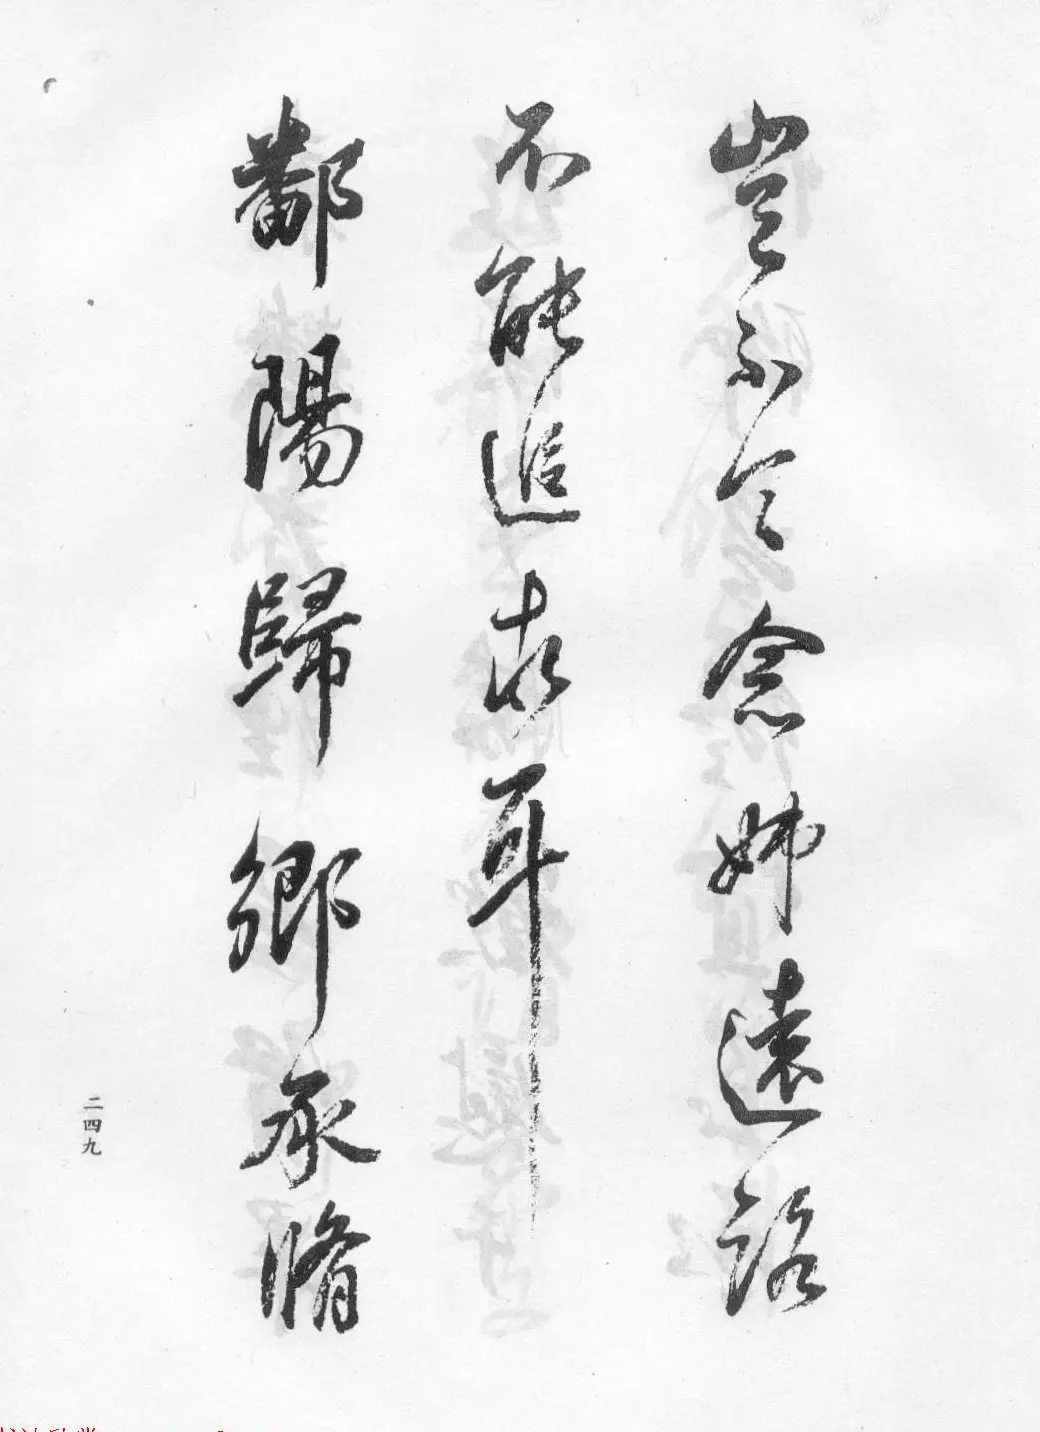 豈不令念姊遠路
不能追求耳
鄱陽歸鄉承脩
二四九